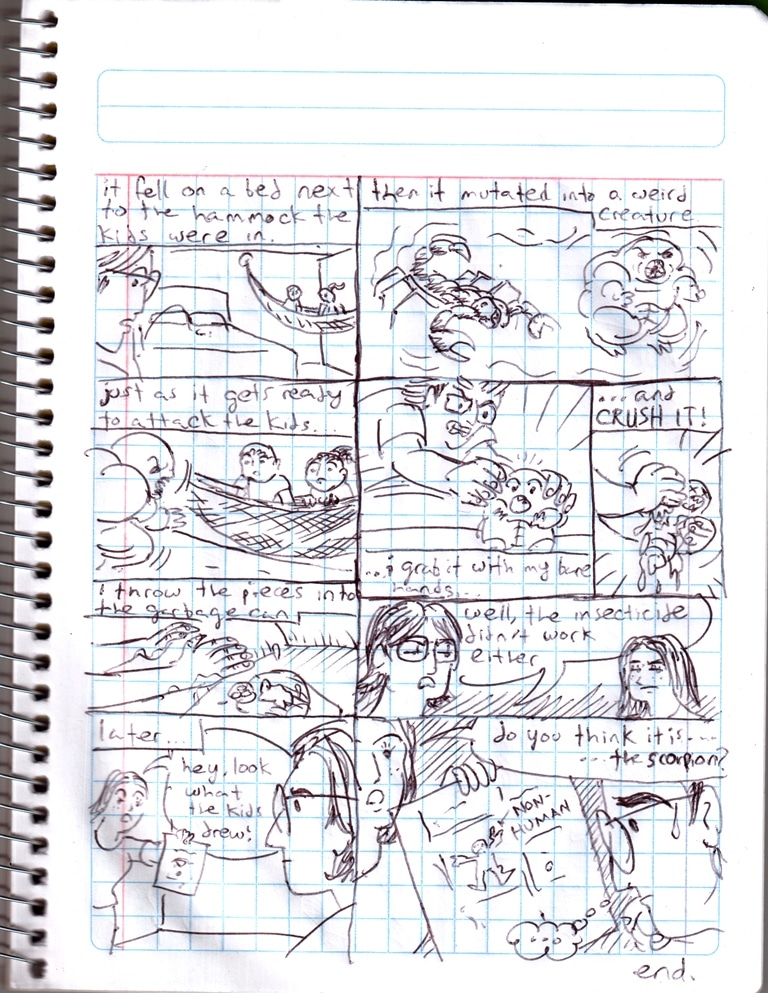 it fell on a bed next
to the hammock the
kids were in.
then it mutated into a weird
creature
just as it gets ready
to attack the kids...
...i grab it with my bare
hands...
...and
CRUSH IT!
i throw the pieces into
the garbage can
well, the insecticide
didn't work
either
later...
hey, look
what
the kids
drew!
do you think it is....
...the scorpion?
NON-
HUMAN
end.